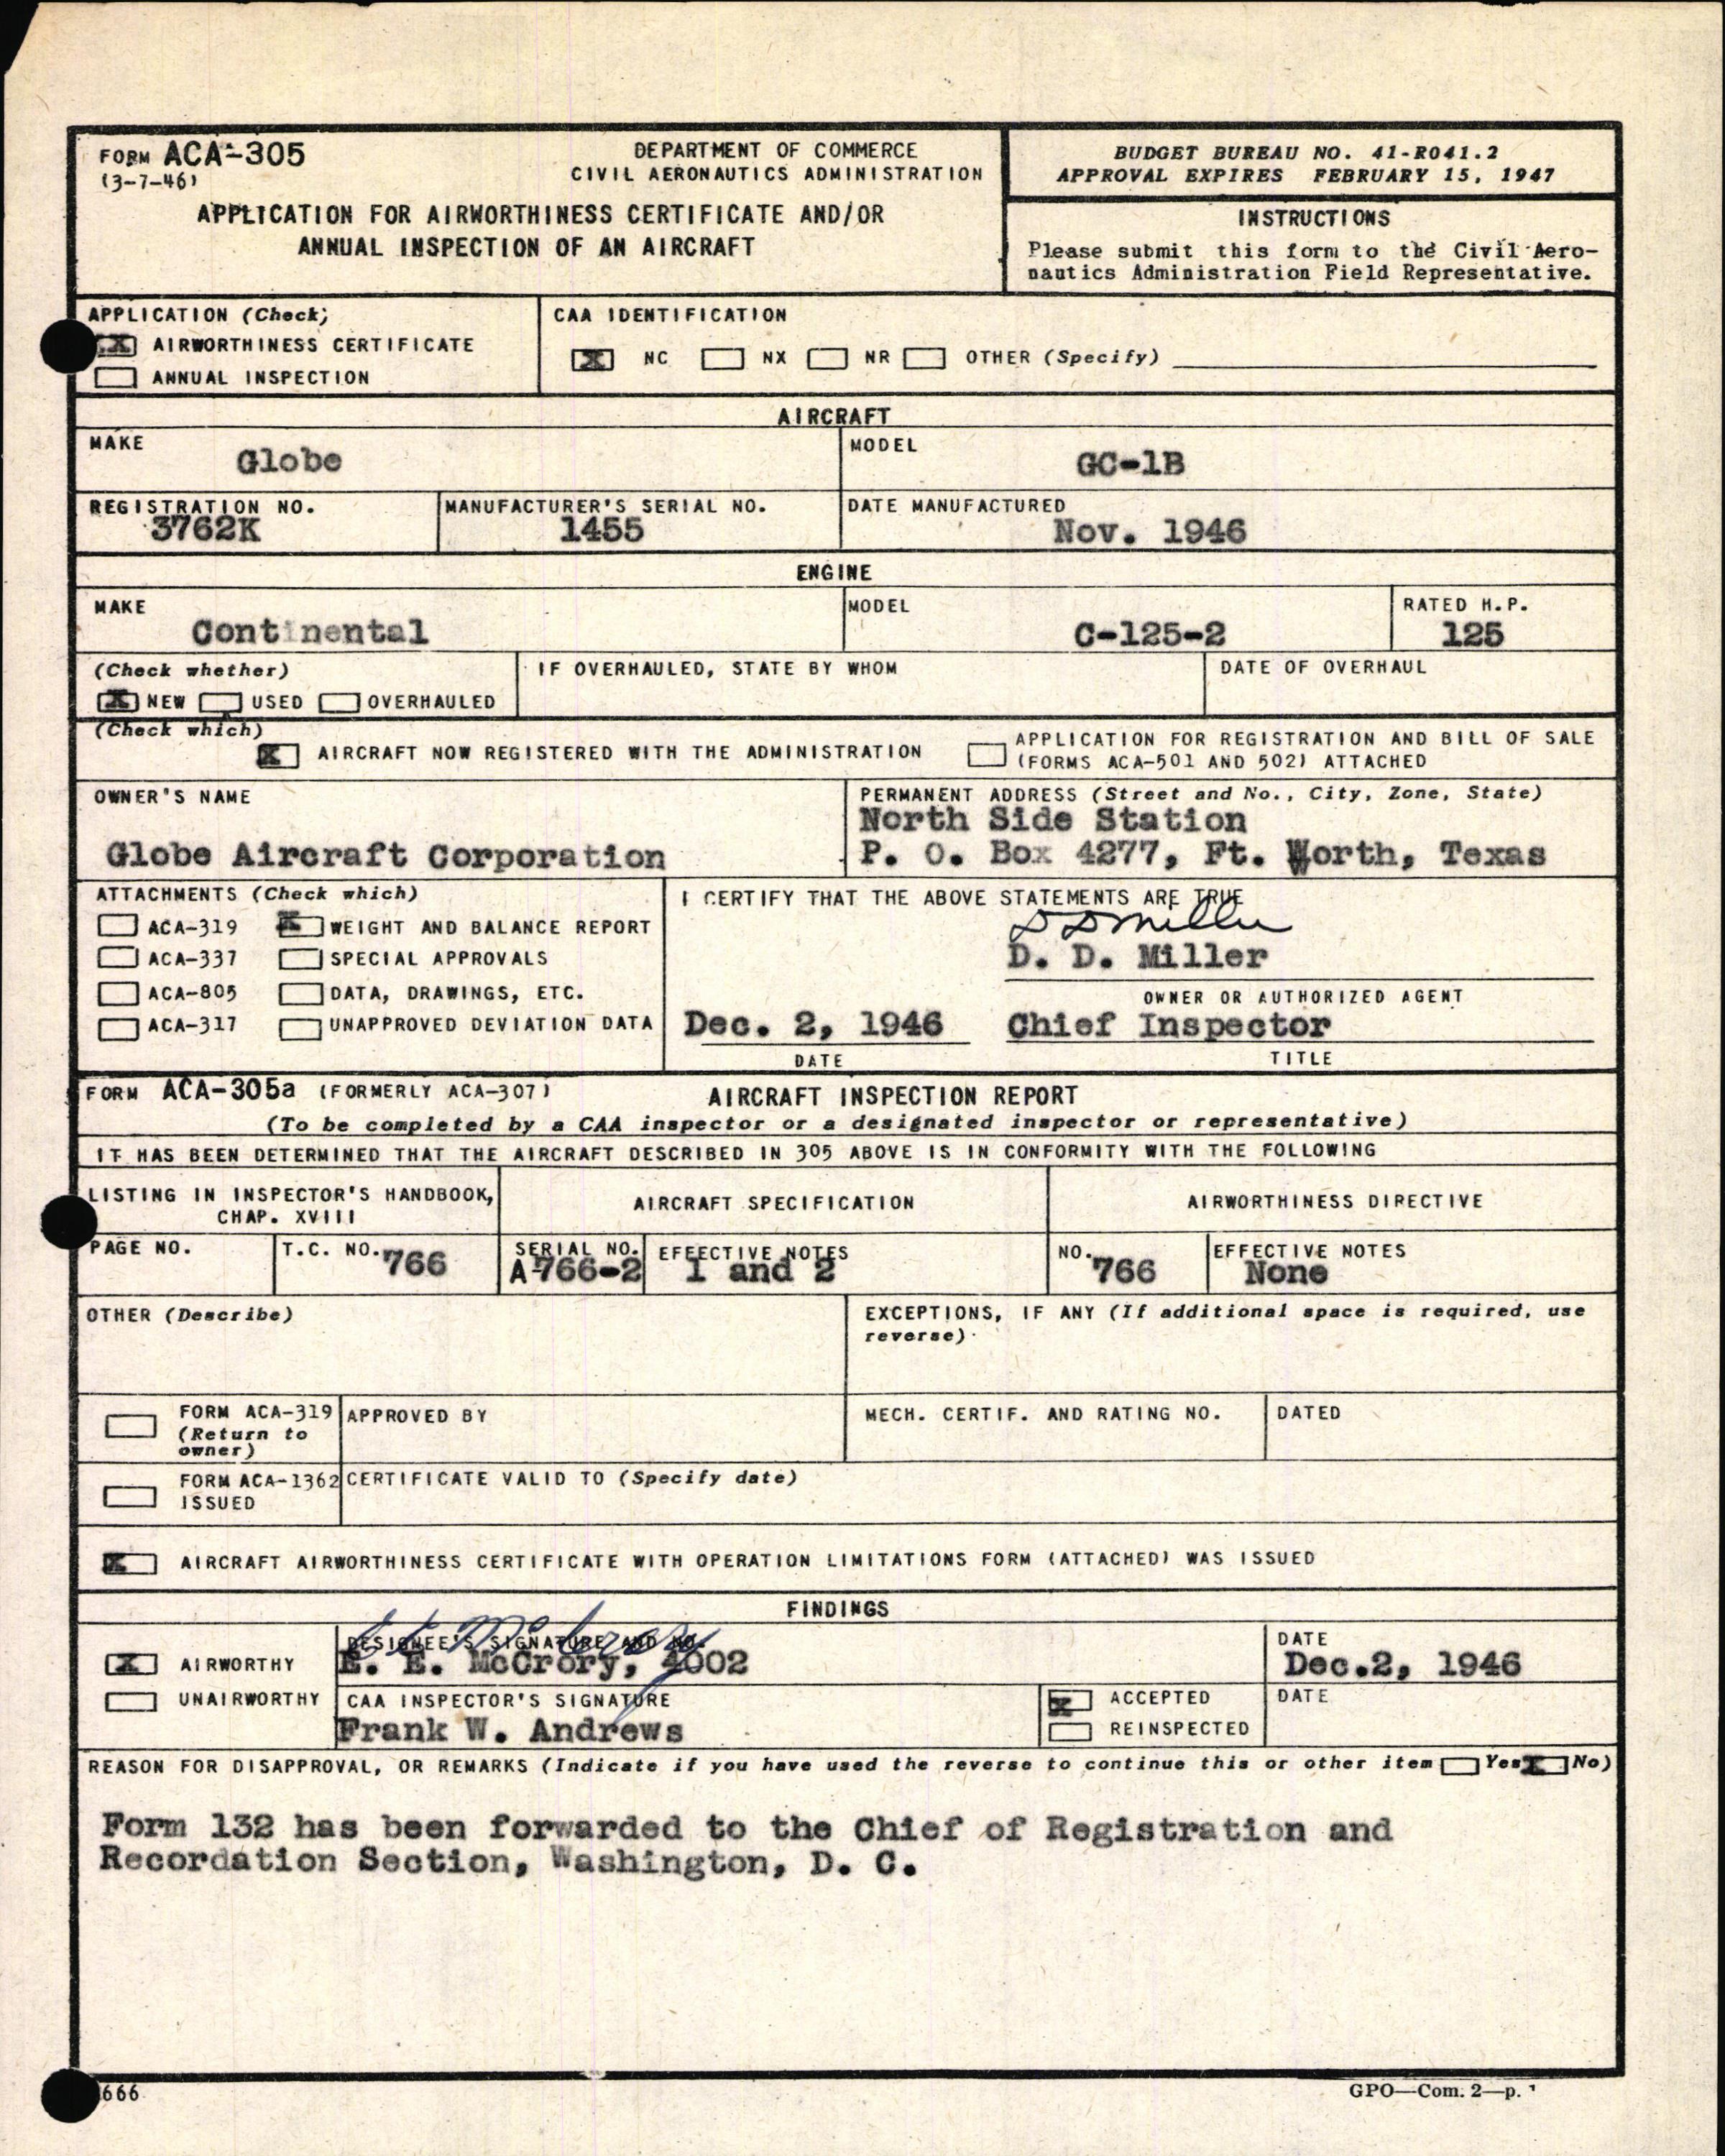 FORM ACA-305
(3-7-46)
DEPARTMENT OF COMMERCE
CIVIL AERONAUTICS ADMINISTRATION
APPLICATION FOR AIRWORTHINESS CERTIFICATE AND/OR
ANNUAL INSPECTION OF AN AIRCRAFT
BUDGET BUREAU NO. 41-R041.2
APPROVAL EXPIRES FEBRUARY 15, 1947
INSTRUCTIONS
Please submit this form to the Civil Aero-
nautics Administration Field Representative.
APPLICATION (Check)
X AIRWORTHINESS CERTIFICATE
ANNUAL INSPECTION
CAA IDENTIFICATION
X NC NX NR OTHER (Specify)
AIRCRAFT
MAKE
Globe
MODEL
GC-1B
REGISTRATION NO.
3762K
MANUFACTURER'S SERIAL NO.
1455
DATE MANUFACTURED
Nov. 1946
ENGINE
MAKE
Continental
MODEL
C-125-2
RATED H.P.
125
(Check whether)
X NEW USED OVERHAULED
IF OVERHAULED, STATE BY WHOM
DATE OF OVERHAUL
(Check which)
X AIRCRAFT NOW REGISTERED WITH THE ADMINISTRATION
APPLICATION FOR REGISTRATION AND BILL OF SALE
(FORMS ACA-501 AND 502) ATTACHED
OWNER'S NAME
Globe Aircraft Corporation
PERMANENT ADDRESS (Street and No., City, Zone, State)
North Side Station
P. O. Box 4277, Ft. Worth, Texas
ATTACHMENTS (Check which)
ACA-319 X WEIGHT AND BALANCE REPORT
ACA-337 SPECIAL APPROVALS
ACA-805 DATA, DRAWINGS, ETC.
ACA-317 UNAPPROVED DEVIATION DATA
I CERTIFY THAT THE ABOVE STATEMENTS ARE TRUE
D D Miller
D. D. Miller
OWNER OR AUTHORIZED AGENT
Dec. 2, 1946 Chief Inspector
DATE TITLE
FORM ACA-305a (FORMERLY ACA-307) AIRCRAFT INSPECTION REPORT
(To be completed by a CAA inspector or a designated inspector or representative)
IT HAS BEEN DETERMINED THAT THE AIRCRAFT DESCRIBED IN 305 ABOVE IS IN CONFORMITY WITH THE FOLLOWING
LISTING IN INSPECTOR'S HANDBOOK,
CHAP. XVIII
AIRCRAFT SPECIFICATION
AIRWORTHINESS DIRECTIVE
PAGE NO.
T.C. NO. 766
SERIAL NO.
A-766-2
EFFECTIVE NOTES
1 and 2
NO. 766
EFFECTIVE NOTES
None
OTHER (Describe)
EXCEPTIONS, IF ANY (If additional space is required, use
reverse)
FORM ACA-319
(Return to
owner)
APPROVED BY
MECH. CERTIF. AND RATING NO.
DATED
FORM ACA-1362
ISSUED
CERTIFICATE VALID TO (Specify date)
X AIRCRAFT AIRWORTHINESS CERTIFICATE WITH OPERATION LIMITATIONS FORM (ATTACHED) WAS ISSUED
FINDINGS
X AIRWORTHY
UNAIRWORTHY
E E McCrory
DESIGNEE'S SIGNATURE AND NO.
E. E. McCrory, 4002
DATE
Dec.2, 1946
CAA INSPECTOR'S SIGNATURE
Frank W. Andrews
X ACCEPTED
REINSPECTED
DATE
REASON FOR DISAPPROVAL, OR REMARKS (Indicate if you have used the reverse to continue this or other item Yes X No)
Form 132 has been forwarded to the Chief of Registration and
Recordation Section, Washington, D. C.
666
GPO—Com. 2—p.